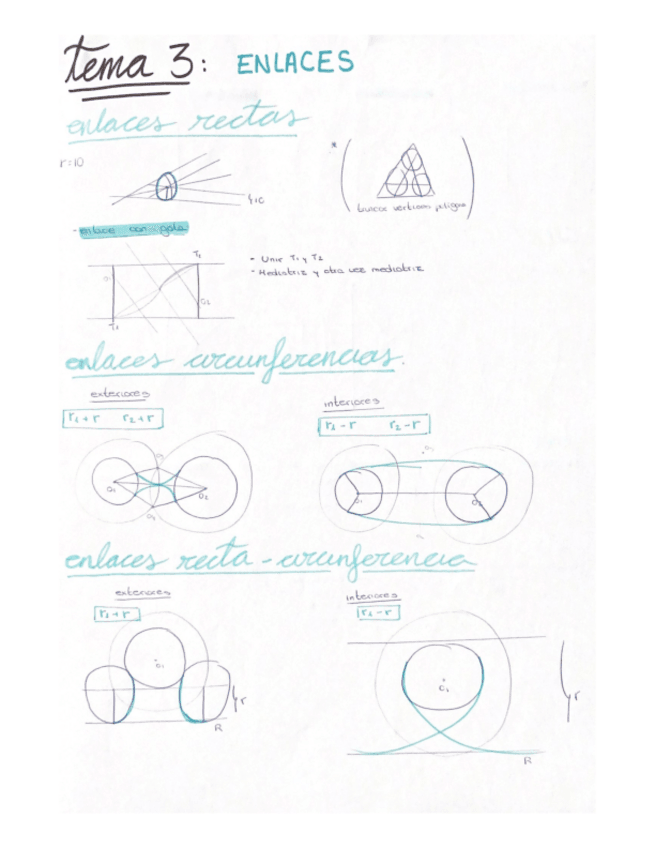 tema 3: ENLACES
enlaces rectas
r=10
buscar vértices peligro
- enlace con gola
T2
O1
O2
T1
- Unir T1 y T2
- Mediatriz y otra vez mediatriz
enlaces circunferencias.
exteriores
r1+r r2+r
interiores
r1-r r2-r
O1
O2
O1
O2
enlaces recta-circunferencia
exteriores
r1+r
interiores
r1-r
O1
r
R
O1
r
R